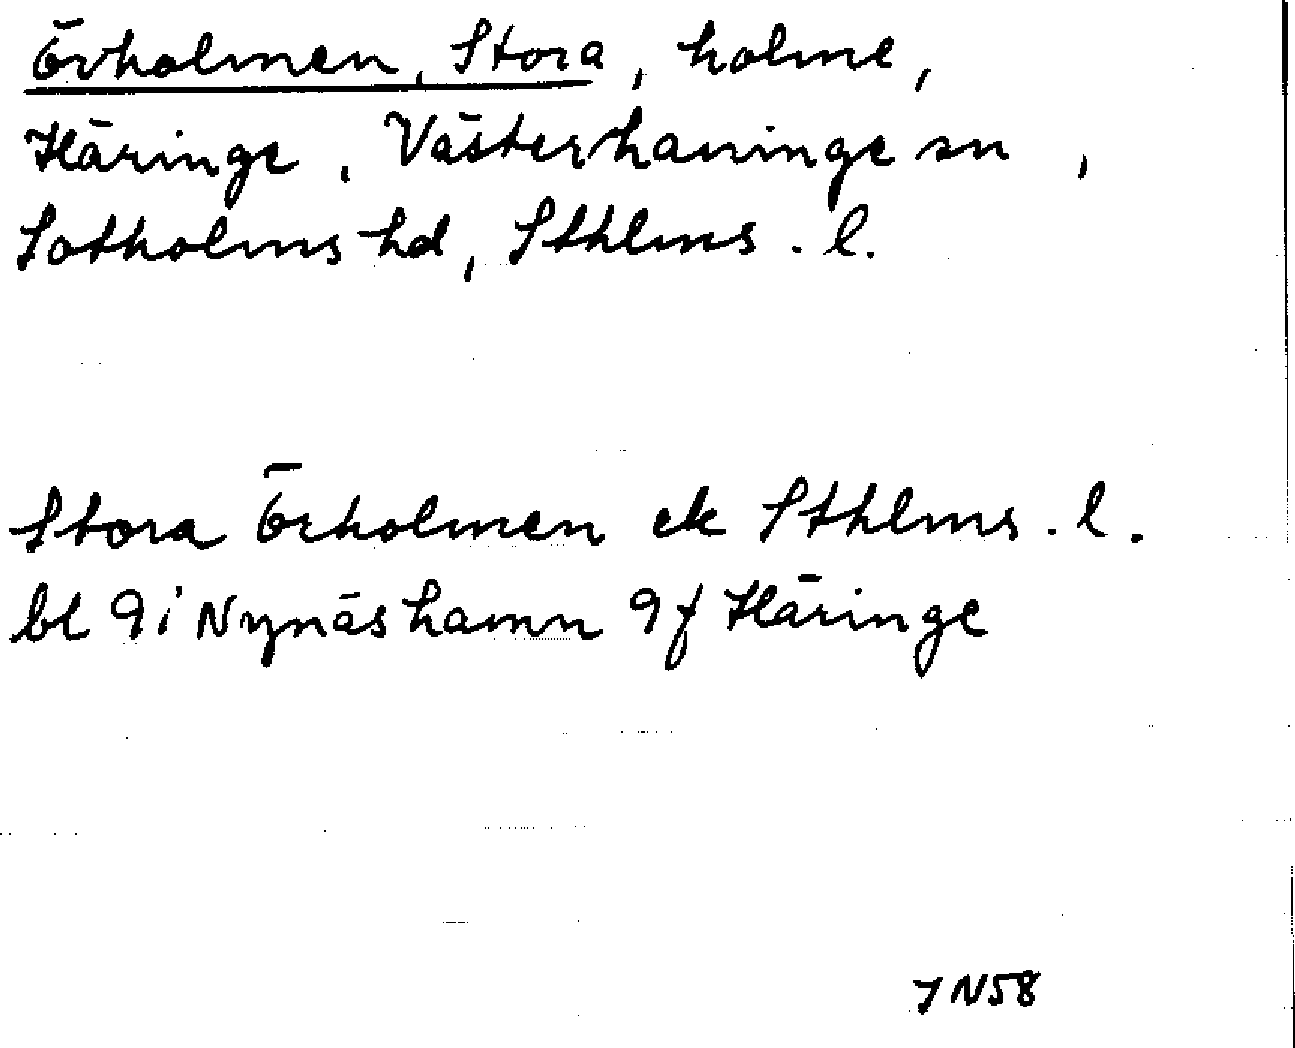 Örholmen, Stora, holme,
Häringe, Västerhaninge sn,
Sotholms hd, Sthlms. l.
Stora Örholmen ek Sthlms. l.
bl 9i Nynäshamn 9f Häringe
JN58